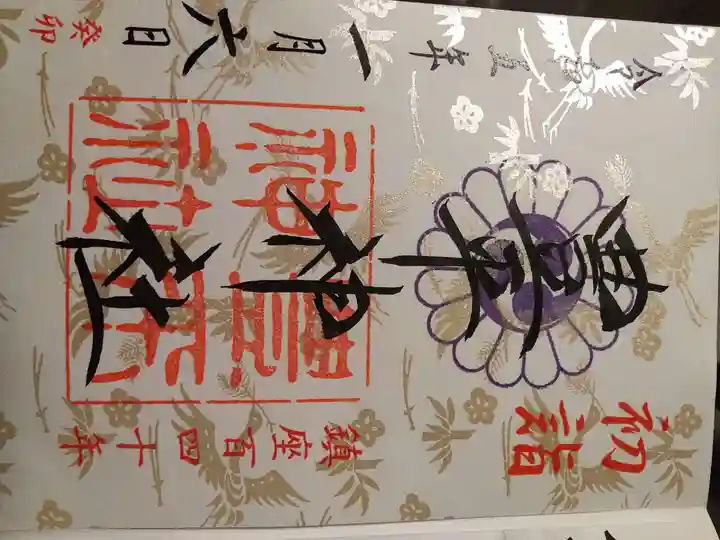 初詣
鎮座百四十年
豊平神社
豊平
神社
令和五年一月六日
癸卯